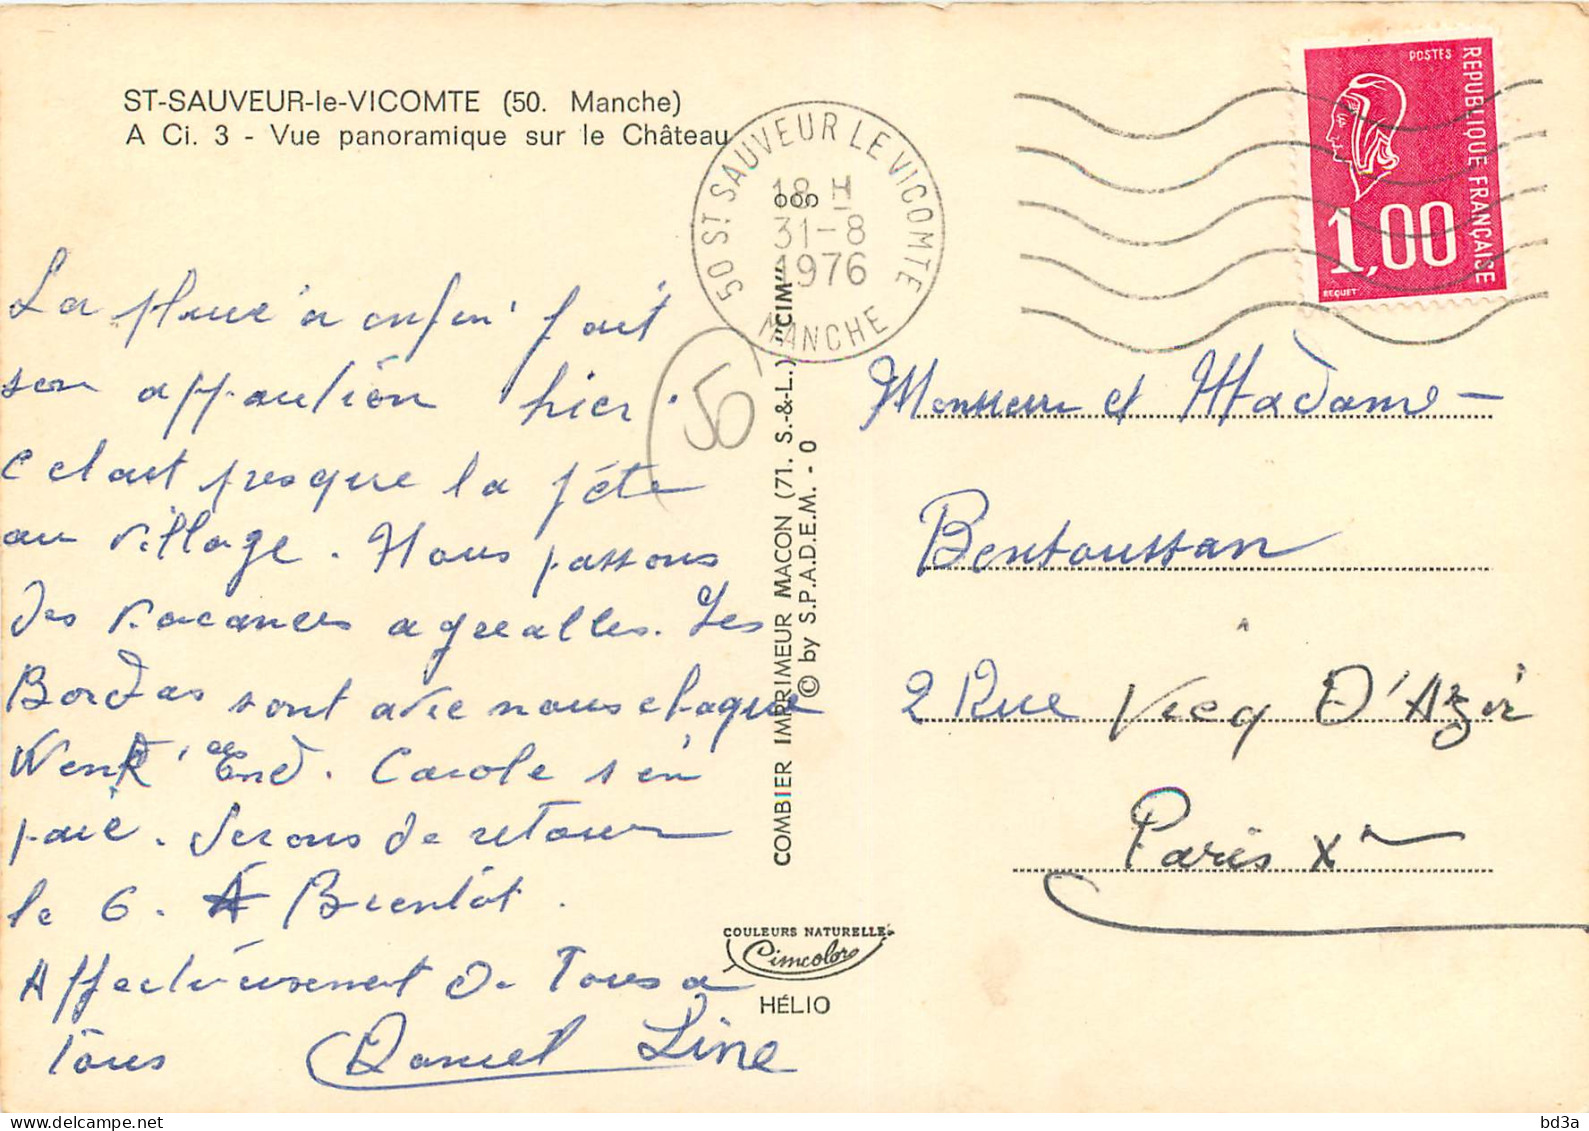 ST-SAUVEUR-le-VICOMTE (50. Manche)
A Ci. 3 - Vue panoramique sur le Château
La pluie a enfin fait
son apparution hier.
C etait presque la fête
au village. Nous passons
des vacances agrealles. Les
Bordas sont avec nous chaque
Week End. Carole s'en
paie. Serons de retour
le 6. A Bientôt.
Affectueusement de Tous a
Tous Daniel Line
50
50 ST SAUVEUR LE VICOMTE
18 H
31-8
1976
MANCHE
COMBIER IMPRIMEUR MACON (71. S.-&-L.) "CIM"
© by S.P.A.D.E.M. - 0
COULEURS NATURELLES
Cimcolor
HÉLIO
POSTES
REPUBLIQUE FRANÇAISE
1,00
BEQUET
Monsieur et Madame
Bentoussan
2 Rue Vicq D'Azir
Paris Xm
bd3a